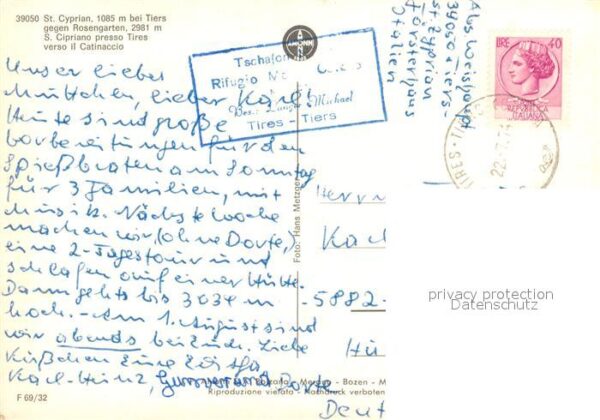 39050 St. Cyprian, 1085 m bei Tiers
gegen Rosengarten, 2981 m
S. Cipriano presso Tires
verso il Catinaccio
Unser liebes
Muttchen, lieber Karl!
Heute sind große
Vorbereitungen für den
Spießbraten am Sonntag
für 3 Familien, mit
Musik. Nächste Woche
machen wir, (ohne Dorte,)
eine 2-Tagestour und
schlafen auf einer Hütte.
Dann gehts bis 3034 m
hoch. - Am 1. August sind
wir abends bei Euch. Liebe
Küßchen Eure
Karl-Heinz, und Dorte
F 69/32
Rifugio
Michael
Tires - Tiers
Foto: Hans Metzger
Abs.
39050 Tiers-
St. Zyprian
Försterhaus
Italien
LIRE 40
REPUBBLICA
ITALIANA
TIRES - TI
22.7.7
Herrn
Ka
5882
Hü
Deut
- Bozen - M
Riproduzione vietata - Nachdruck verboten
privacy protection
Datenschutz